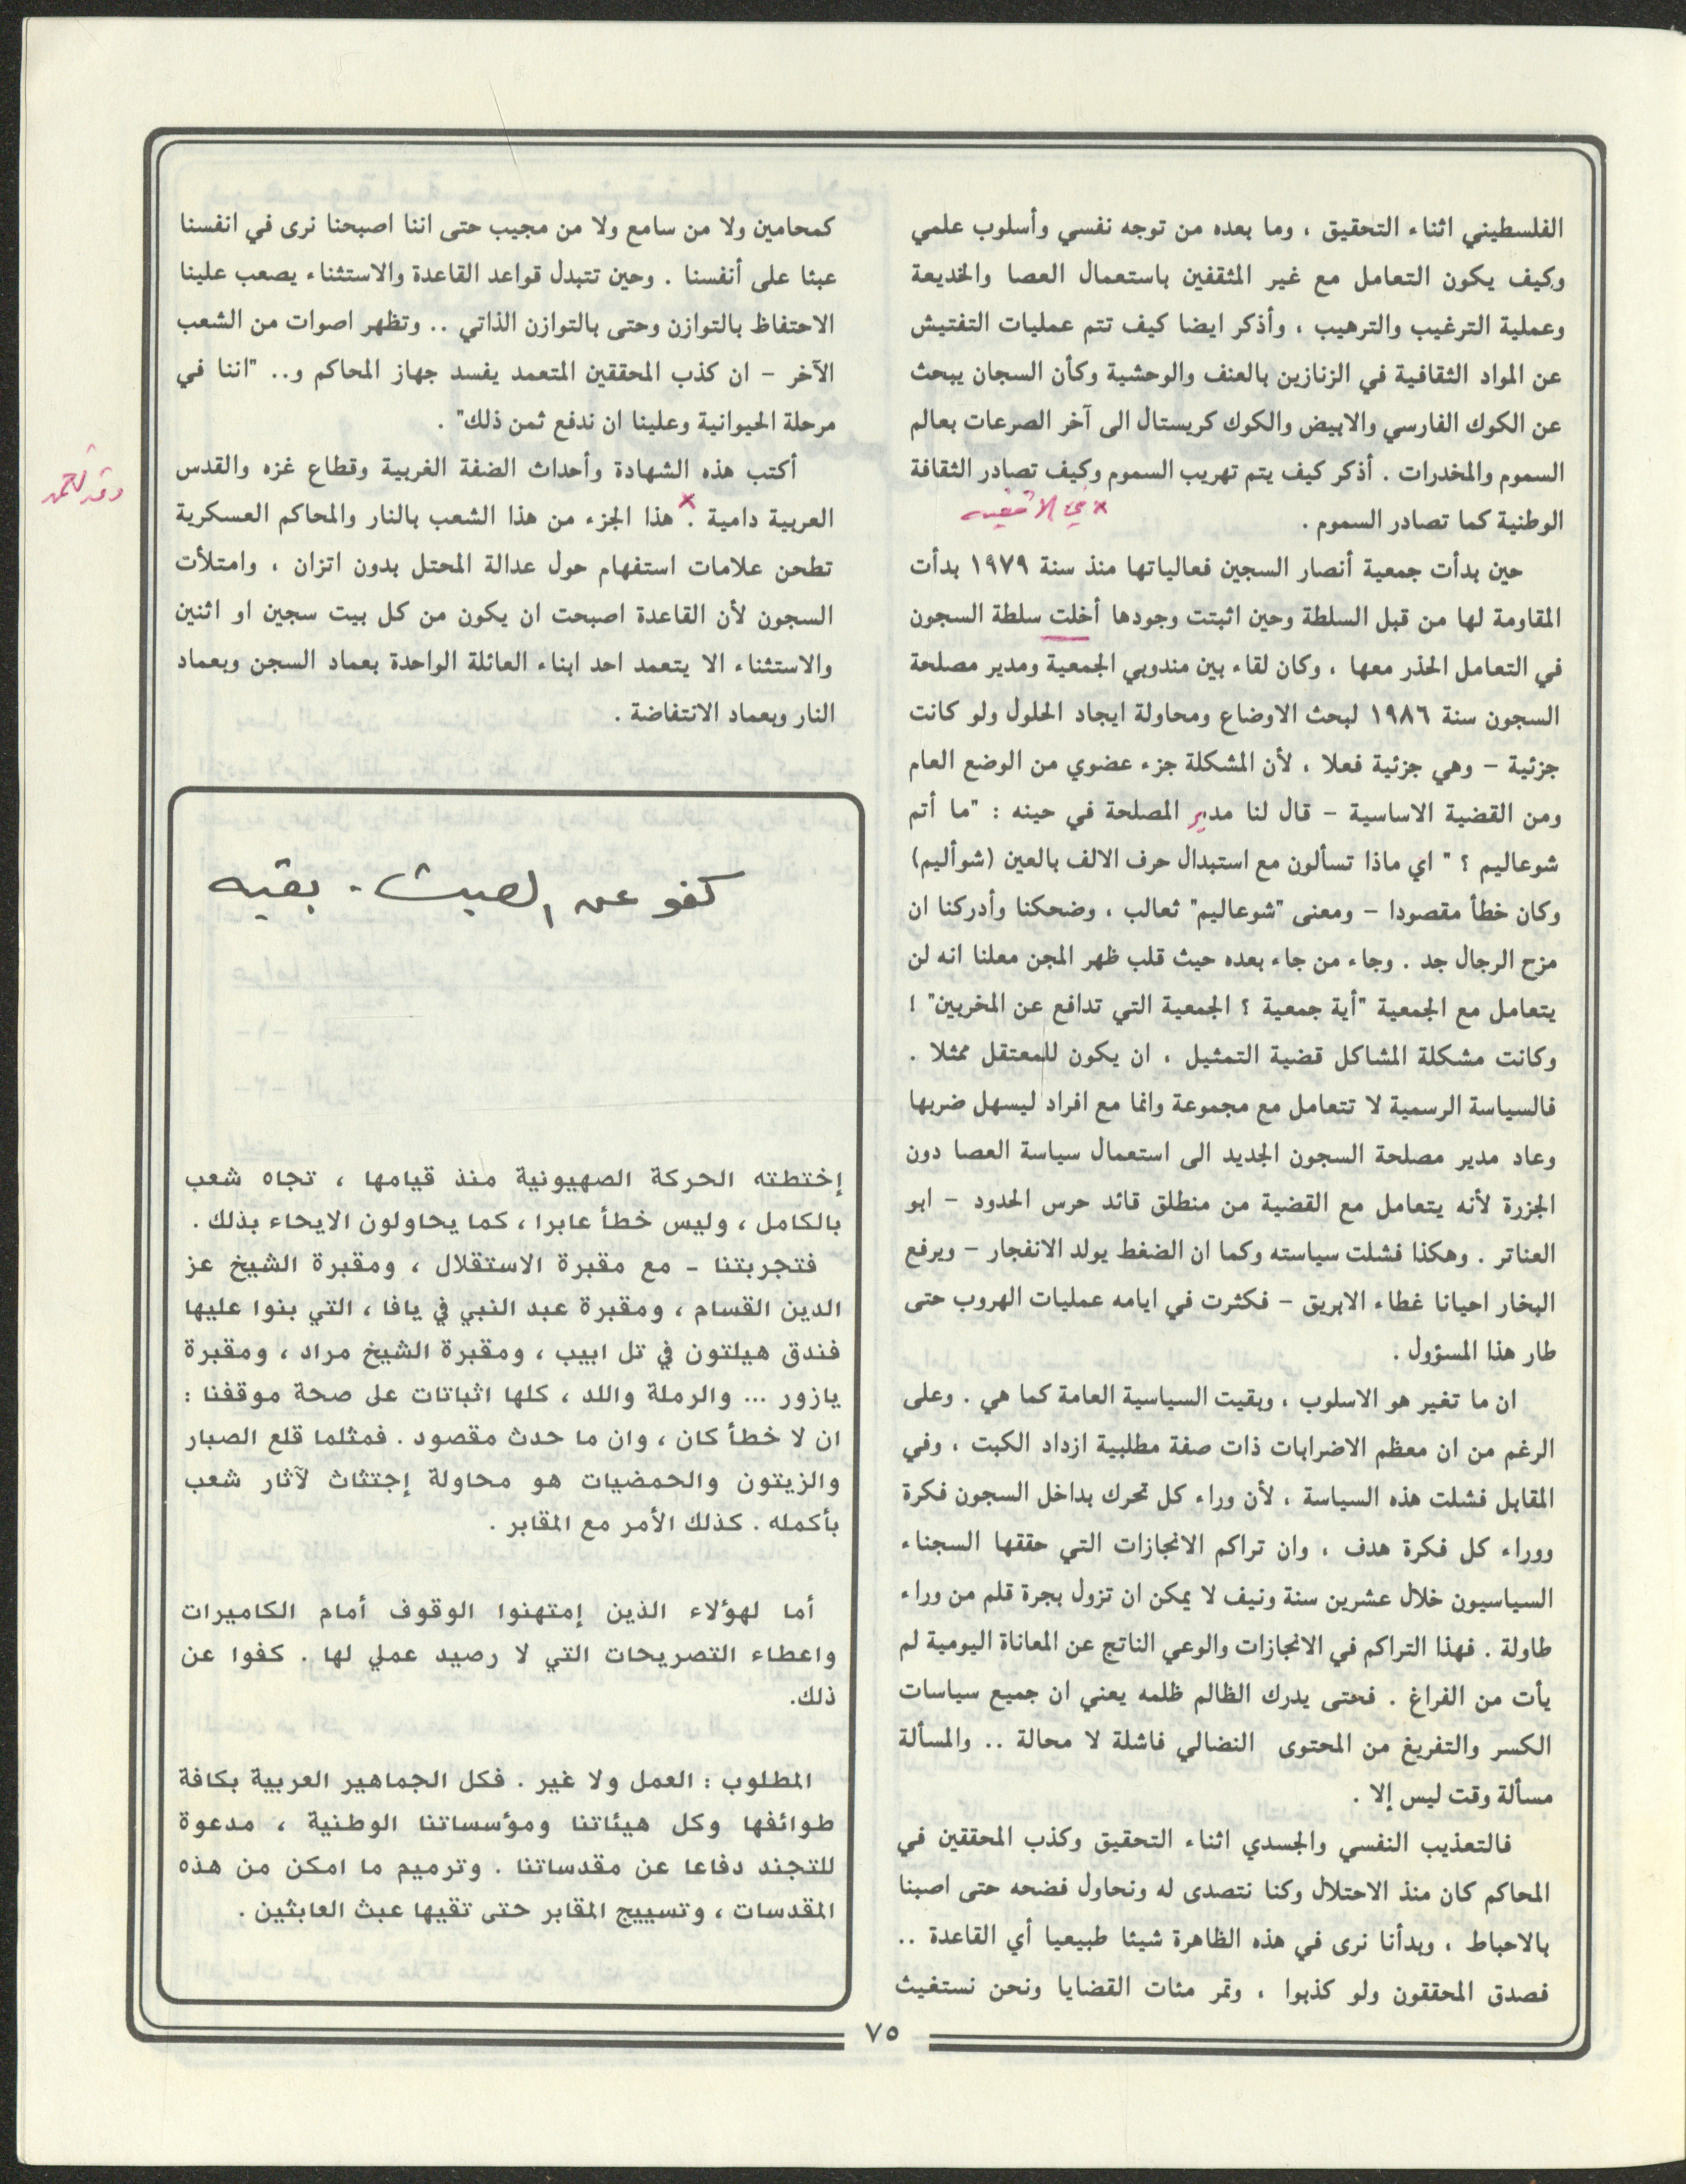 الفلسطيني اثناء التحقيق ، وما بعده من توجه نفسي وأسلوب علمي
وكيف يكون التعامل مع غير المثقفين باستعمال العصا والخديعة
وعملية الترغيب والترهيب ، وأذكر ايضا كيف تتم عمليات التفتيش
عن المواد الثقافية في الزنازين بالعنف والوحشية وكأن السجان يبحث
عن الكوك الفارسي والابيض والكوك كريستال الى آخر الصرعات بعالم
السموم والمخدرات . أذكر كيف يتم تهريب السموم وكيف تصادر الثقافة
الوطنية كما تصادر السموم .
حين بدأت جمعية أنصار السجين فعالياتها منذ سنة ١٩٧٩ بدأت
المقاومة لها من قبل السلطة وحين اثبتت وجودها أخلت سلطة السجون
في التعامل الحذر معها ، وكان لقاء بين مندوبي الجمعية ومدير مصلحة
السجون سنة ١٩٨٦ لبحث الاوضاع ومحاولة ايجاد الحلول ولو كانت
جزئية - وهي جزئية فعلا ، لأن المشكلة جزء عضوي من الوضع العام
ومن القضية الاساسية - قال لنا مدير المصلحة في حينه : "ما أتم
شوعاليم ؟ " اي ماذا تسألون مع استبدال حرف الالف بالعين (شوأليم)
وكان خطأ مقصودا - ومعنى "شوعاليم" ثعالب ، وضحكنا وأدركنا ان
مزح الرجال جد . وجاء من جاء بعده حيث قلب ظهر المجن معلنا انه لن
يتعامل مع الجمعية "أية جمعية ؟ الجمعية التي تدافع عن المخربين" !
وكانت مشكلة المشاكل قضية التمثيل ، ان يكون للمعتقل ممثلا .
فالسياسة الرسمية لا تتعامل مع مجموعة وانما مع افراد ليسهل ضربها
وعاد مدير مصلحة السجون الجديد الى استعمال سياسة العصا دون
الجزرة لأنه يتعامل مع القضية من منطلق قائد حرس الحدود - ابو
العناتر . وهكذا فشلت سياسته وكما ان الضغط يولد الانفجار - ويرفع
البخار احيانا غطاء الابريق - فكثرت في ايامه عمليات الهروب حتى
طار هذا المسؤول .
ان ما تغير هو الاسلوب ، وبقيت السياسية العامة كما هي . وعلى
الرغم من ان معظم الاضرابات ذات صفة مطلبية ازداد الكبت ، وفي
المقابل فشلت هذه السياسة ، لأن وراء كل تحرك بداخل السجون فكرة
ووراء كل فكرة هدف ، وان تراكم الانجازات التي حققها السجناء
السياسيون خلال عشرين سنة ونيف لا يمكن ان تزول بجرة قلم من وراء
طاولة . فهذا التراكم في الانجازات والوعي الناتج عن المعاناة اليومية لم
يأت من الفراغ . فحتى يدرك الظالم ظلمه يعني ان جميع سياسات
الكسر والتفريغ من المحتوى النضالي فاشلة لا محالة .. والمسألة
مسألة وقت ليس إلا .
فالتعذيب النفسي والجسدي اثناء التحقيق وكذب المحققين في
المحاكم كان منذ الاحتلال وكنا نتصدى له ونحاول فضحه حتى اصبنا
بالاحباط ، وبدأنا نرى في هذه الظاهرة شيئا طبيعيا أي القاعدة ..
فصدق المحققون ولو كذبوا ، وتمر مئات القضايا ونحن نستغيث
كمحامين ولا من سامع ولا من مجيب حتى اننا اصبحنا نرى في انفسنا
عبئا على أنفسنا . وحين تتبدل قواعد القاعدة والاستثناء يصعب علينا
الاحتفاظ بالتوازن وحتى بالتوازن الذاتي .. وتظهر اصوات من الشعب
الآخر - ان كذب المحققين المتعمد يفسد جهاز المحاكم و.. "اننا في
مرحلة الحيوانية وعلينا ان ندفع ثمن ذلك" .
أكتب هذه الشهادة وأحداث الضفة الغربية وقطاع غزه والقدس
العربية دامية . هذا الجزء من هذا الشعب بالنار والمحاكم العسكرية
تطحن علامات استفهام حول عدالة المحتل بدون اتزان ، وامتلأت
السجون لأن القاعدة اصبحت ان يكون من كل بيت سجين او اثنين
والاستثناء الا يتعمد احد ابناء العائلة الواحدة بعماد السجن وبعماد
النار وبعماد الانتفاضة .
كفو عن العبث - بقيه
إختطته الحركة الصهيونية منذ قيامها ، تجاه شعب
بالكامل ، وليس خطأ عابرا ، كما يحاولون الايحاء بذلك .
فتجربتنا - مع مقبرة الاستقلال ، ومقبرة الشيخ عز
الدين القسام ، ومقبرة عبد النبي في يافا ، التي بنوا عليها
فندق هيلتون في تل ابيب ، ومقبرة الشيخ مراد ، ومقبرة
يازور ... والرملة واللد ، كلها اثباتات على صحة موقفنا :
ان لا خطأ كان ، وان ما حدث مقصود . فمثلما قلع الصبار
والزيتون والحمضيات هو محاولة إجتثاث لآثار شعب
بأكمله . كذلك الأمر مع المقابر .
أما لهؤلاء الذين إمتهنوا الوقوف أمام الكاميرات
واعطاء التصريحات التي لا رصيد عملي لها . كفوا عن
ذلك.
المطلوب : العمل ولا غير . فكل الجماهير العربية بكافة
طوائفها وكل هيئاتنا ومؤسساتنا الوطنية ، مدعوة
للتجند دفاعا عن مقدساتنا . وترميم ما امكن من هذه
المقدسات ، وتسييج المقابر حتى تقيها عبث العابثين .
٧٥